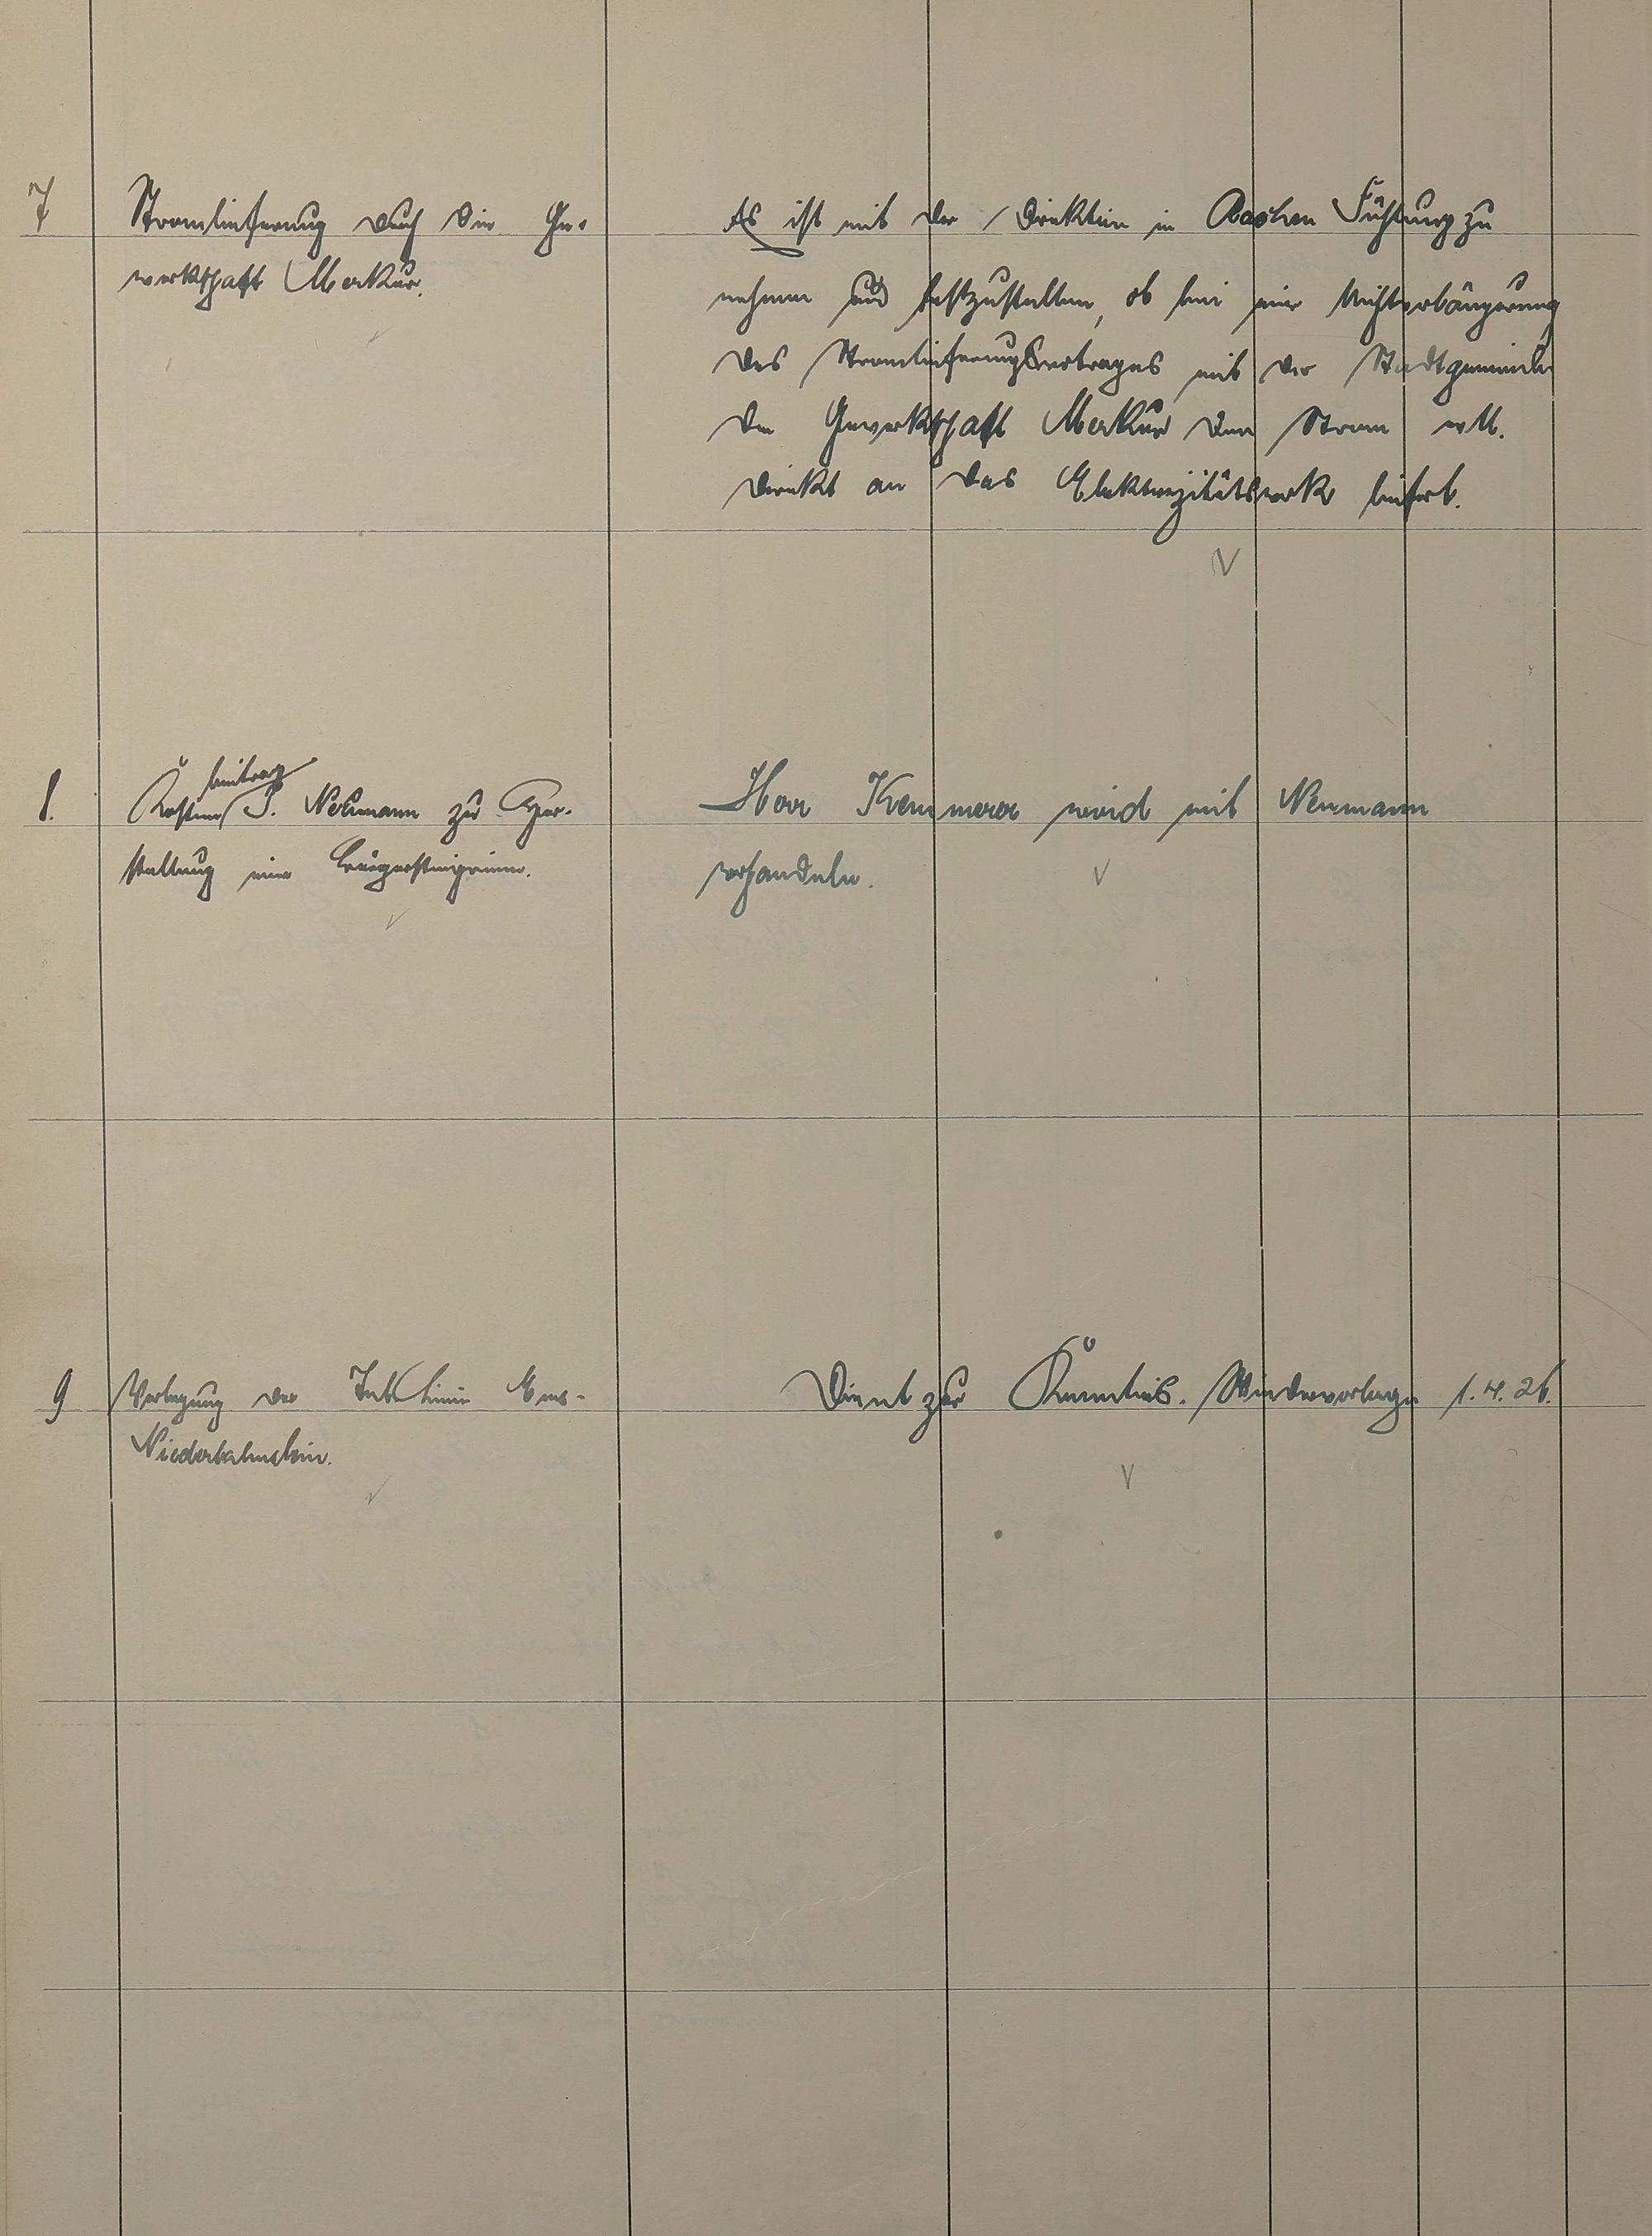 7
Stromlieferung durch die Ge-
werkschaft Merkur.
Es ist mit der Direktion in Aachen Fühlung zu
nehmen und festzustellen, ob bei einer Nichtverlängerung
des Stromlieferungsvertrages mit der Stadtgemeinde
die Gewerkschaft Merkur den Strom evtl.
direkt an das Elektrizitätswerk liefert.
8.
beitrag
Kosten J. Neumann zur Her-
stellung einer Bürgersteigrinne.
Herr Kemmerer wird mit Neumann
verhandeln.
9
Verlegung der Linie Ems-
Niederlahnstein.
Dient zur Kenntnis. Wiedervorlage 1.4.26.